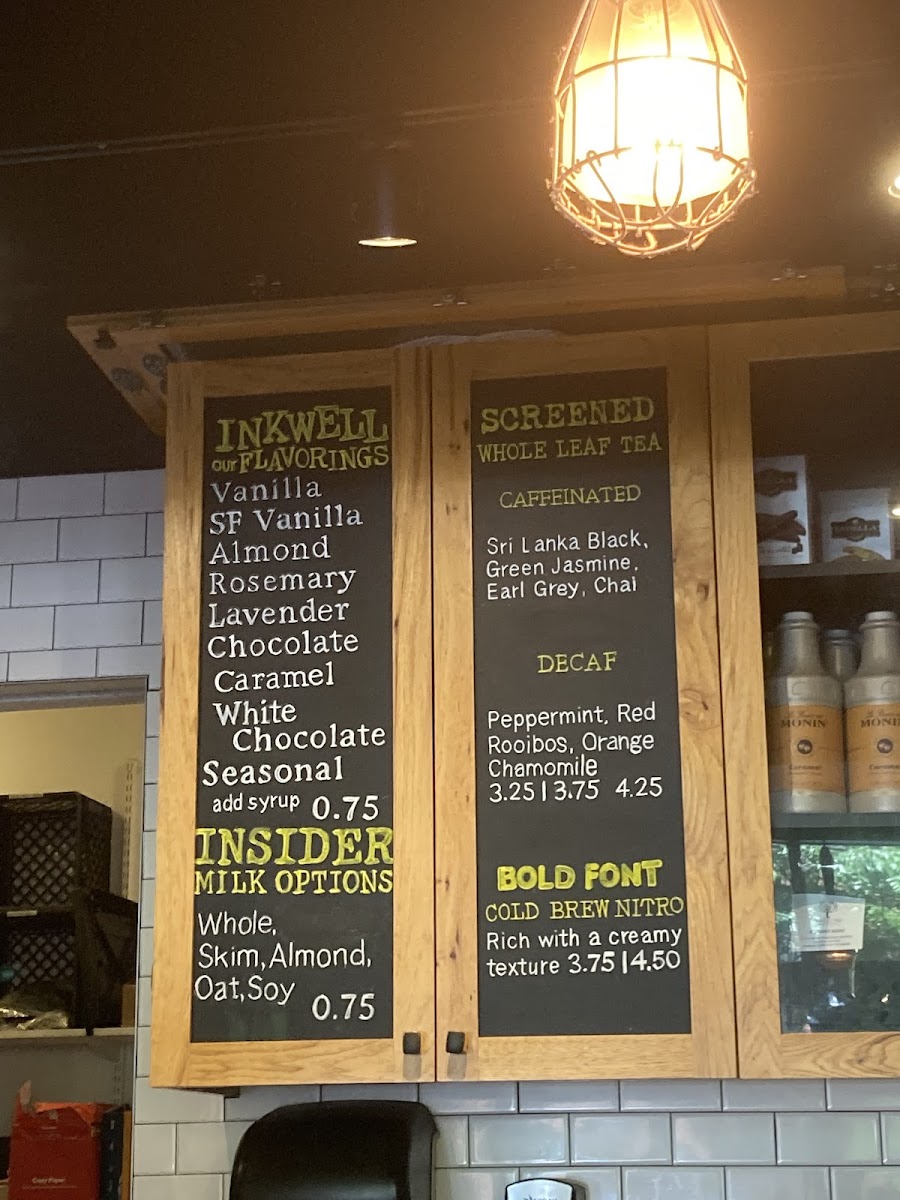 INKWELL
our FLAVORINGS
Vanilla
SF Vanilla
Almond
Rosemary
Lavender
Chocolate
Caramel
White
Chocolate
Seasonal
add syrup 0.75
INSIDER
MILK OPTIONS
Whole,
Skim, Almond,
Oat, Soy
0.75
SCREENED
WHOLE LEAF TEA
CAFFEINATED
Sri Lanka Black,
Green Jasmine,
Earl Grey, Chai
DECAF
Peppermint, Red
Rooibos, Orange
Chamomile
3.25 | 3.75 4.25
BOLD FONT
COLD BREW NITRO
Rich with a creamy
texture 3.75 | 4.50
MONIN
Caramel
MONIN
Caramel
Copy Paper